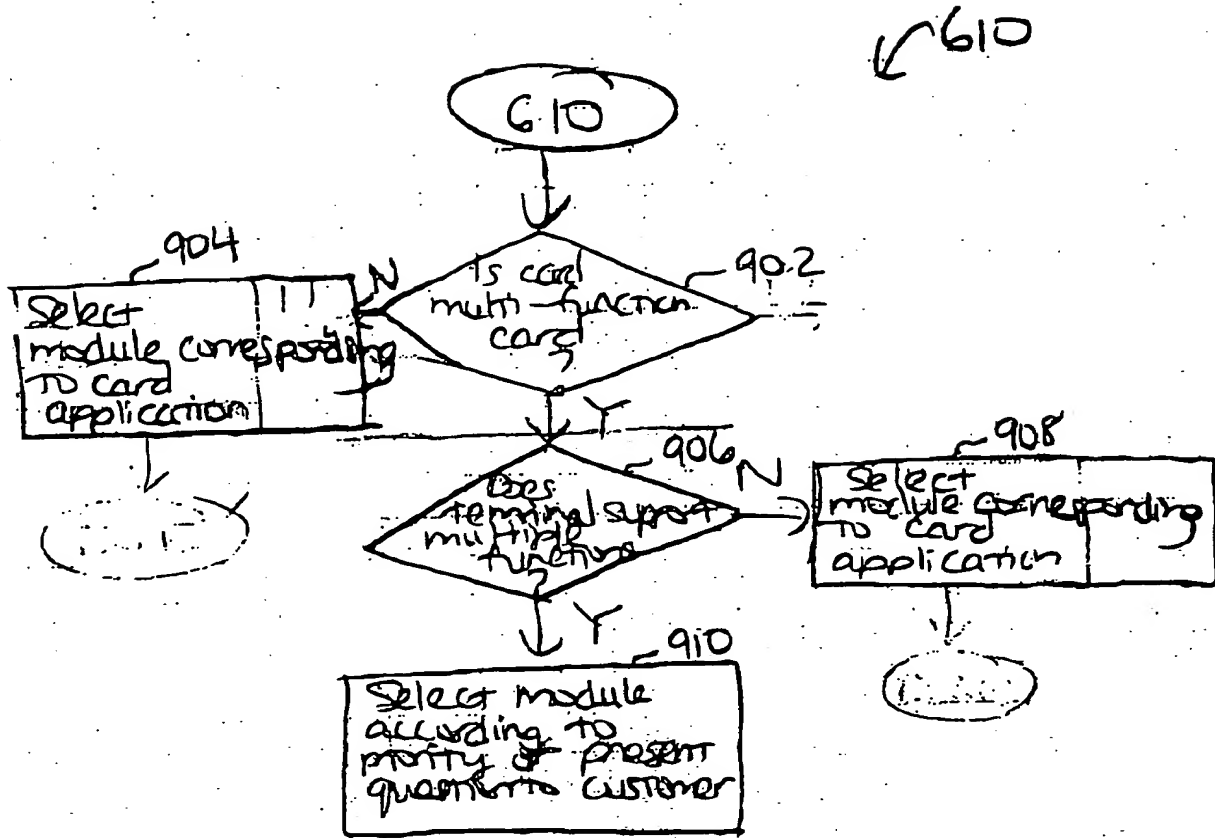 610
610
904
Select
module corresponding
to card
application
N
902
Is card
multi-function
card
?
Y
906
Does
terminal support
multiple
functions
?
N
908
Select
module corresponding
to card
application
Y
910
Select module
according to
priority or present
question to customer